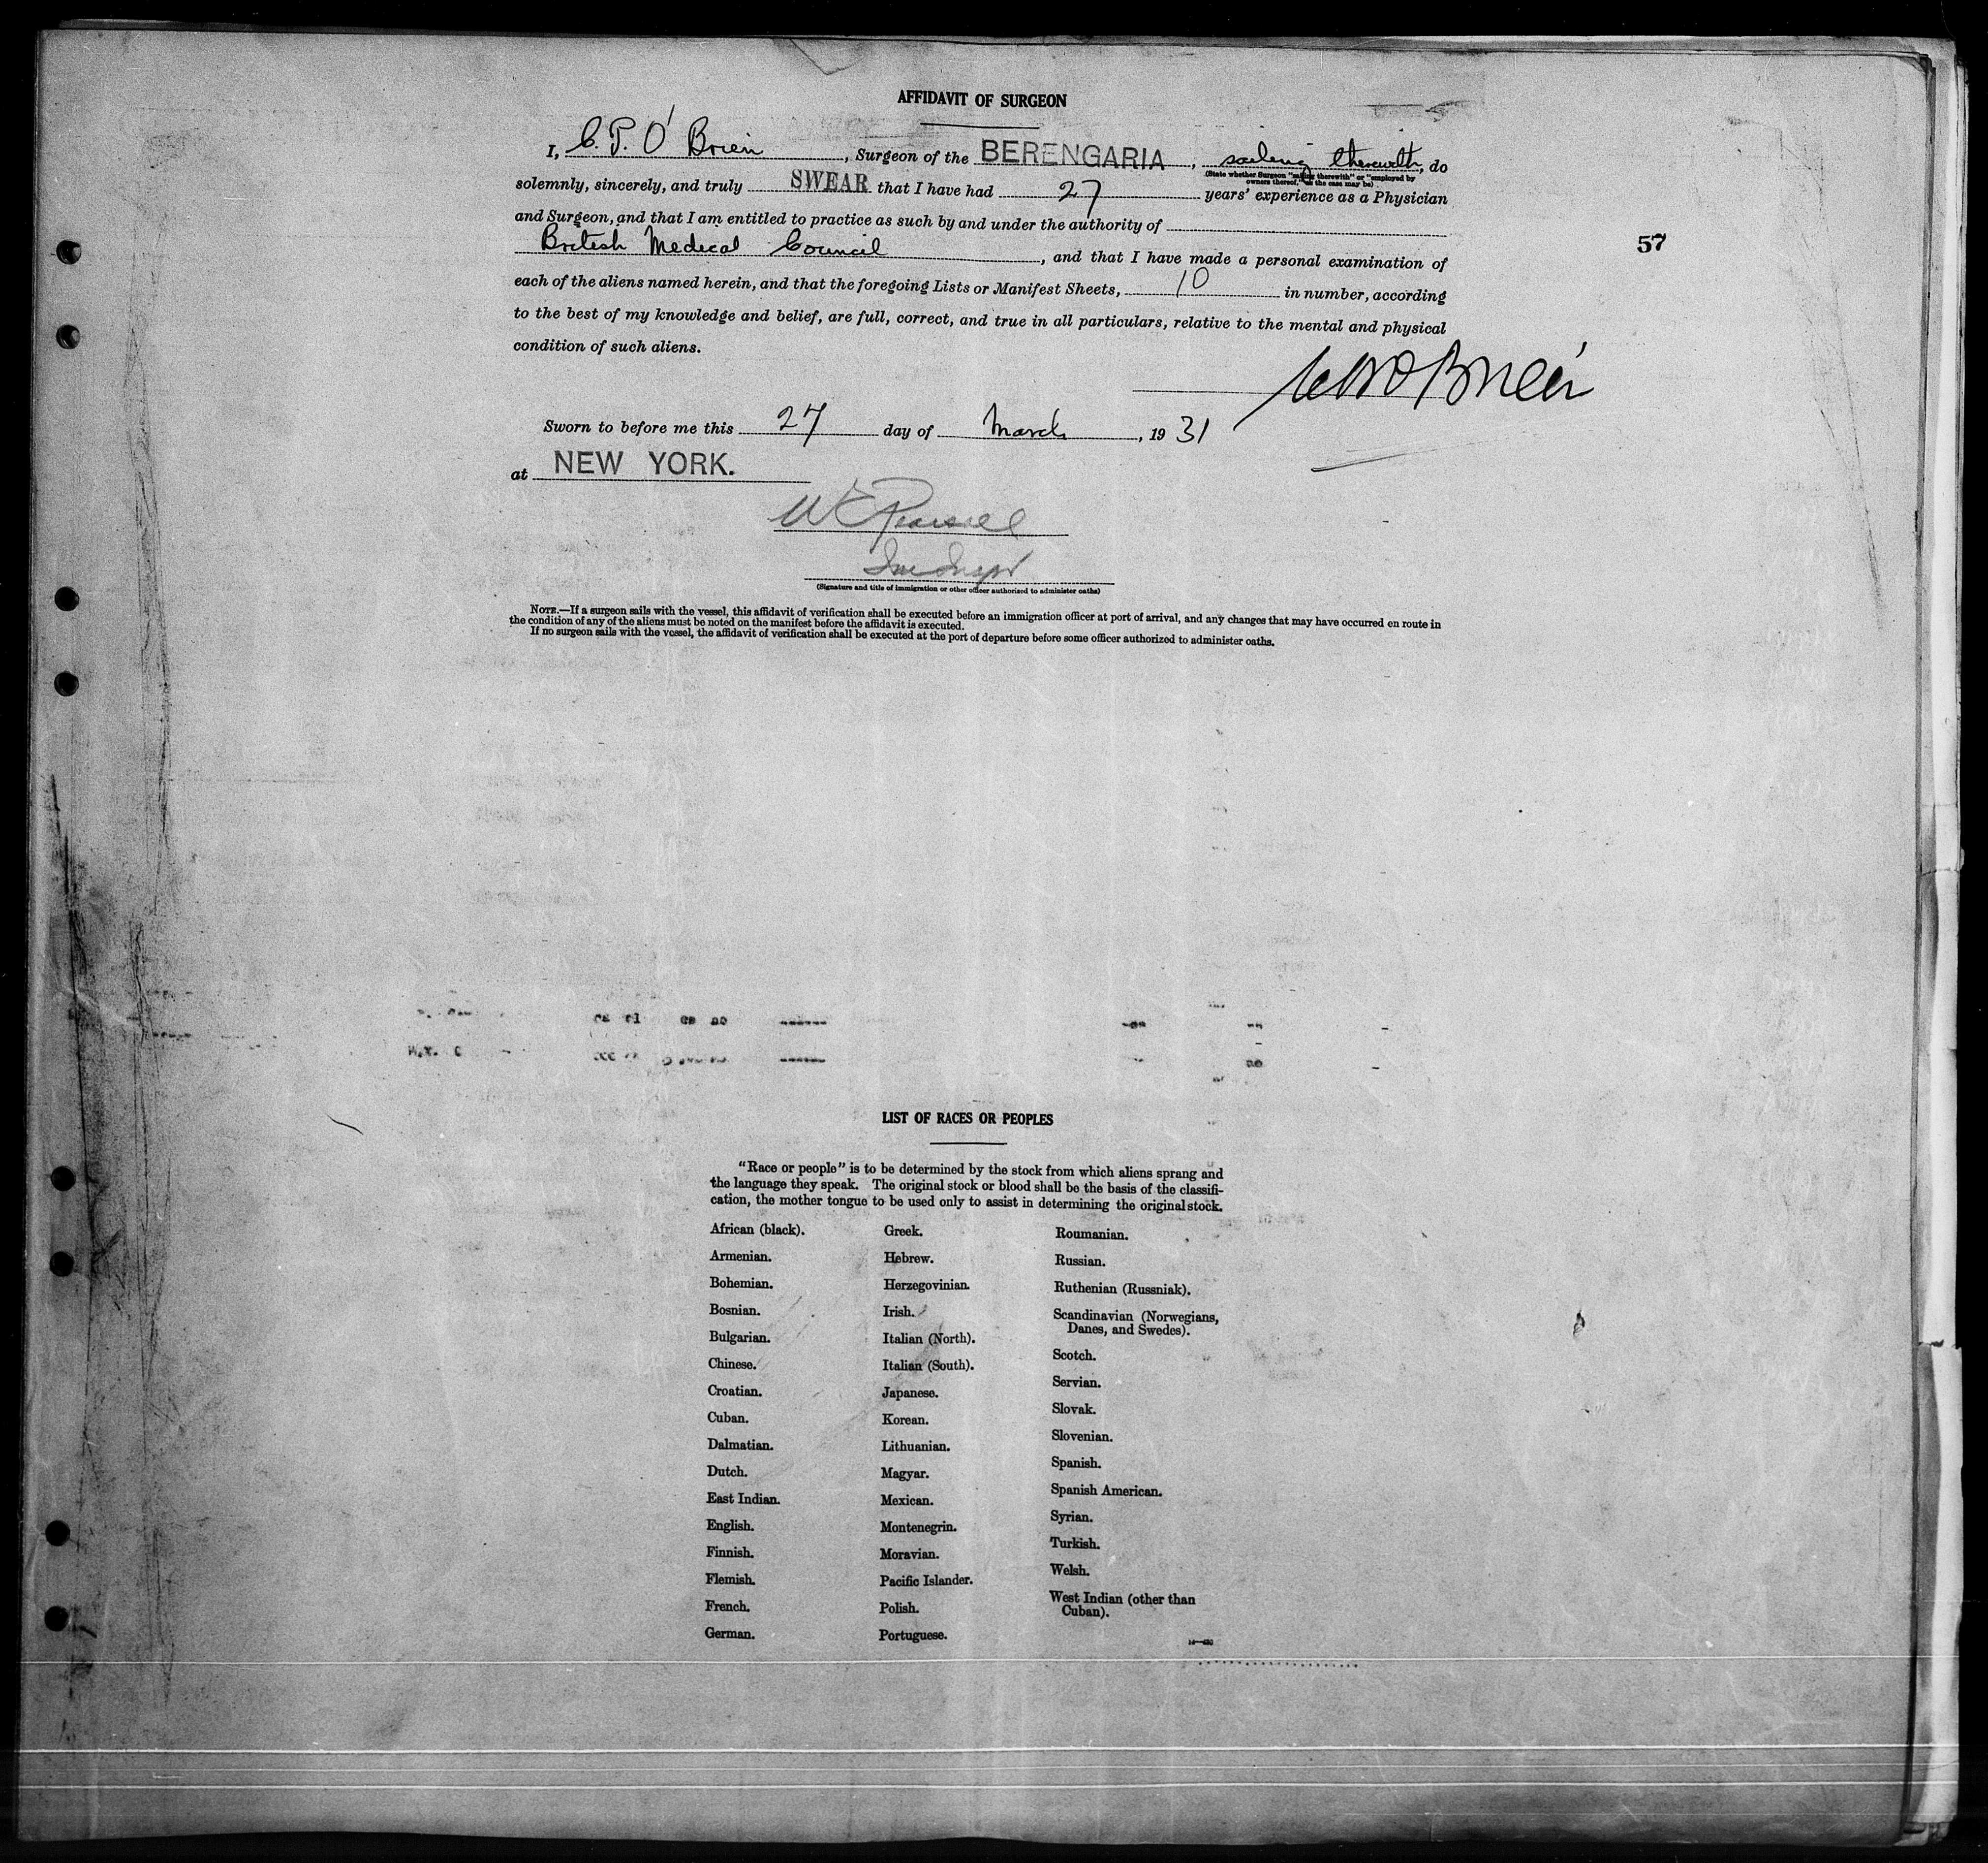 AFFIDAVIT OF SURGEON
I, C. P. O'Brien, Surgeon of the BERENGARIA, sailing therewith, do
(State whether Surgeon "sailing therewith" or "employed by
owners thereof," as the case may be)
solemnly, sincerely, and truly SWEAR that I have had 27 years' experience as a Physician
and Surgeon, and that I am entitled to practice as such by and under the authority of
British Medical Council, and that I have made a personal examination of
57
each of the aliens named herein, and that the foregoing Lists or Manifest Sheets, 10 in number, according
to the best of my knowledge and belief, are full, correct, and true in all particulars, relative to the mental and physical
condition of such aliens.
O'Brien
Sworn to before me this 27 day of March, 1931
at NEW YORK.
(Signature and title of immigration or other officer authorized to administer oaths)
NOTE.—If a surgeon sails with the vessel, this affidavit of verification shall be executed before an immigration officer at port of arrival, and any changes that may have occurred en route in
the condition of any of the aliens must be noted on the manifest before the affidavit is executed.
If no surgeon sails with the vessel, the affidavit of verification shall be executed at the port of departure before some officer authorized to administer oaths.
LIST OF RACES OR PEOPLES
"Race or people" is to be determined by the stock from which aliens sprang and
the language they speak. The original stock or blood shall be the basis of the classifi-
cation, the mother tongue to be used only to assist in determining the original stock.
African (black).
Armenian.
Bohemian.
Bosnian.
Bulgarian.
Chinese.
Croatian.
Cuban.
Dalmatian.
Dutch.
East Indian.
English.
Finnish.
Flemish.
French.
German.
Greek.
Hebrew.
Herzegovinian.
Irish.
Italian (North).
Italian (South).
Japanese.
Korean.
Lithuanian.
Magyar.
Mexican.
Montenegrin.
Moravian.
Pacific Islander.
Polish.
Portuguese.
Roumanian.
Russian.
Ruthenian (Russniak).
Scandinavian (Norwegians,
Danes, and Swedes).
Scotch.
Servian.
Slovak.
Slovenian.
Spanish.
Spanish American.
Syrian.
Turkish.
Welsh.
West Indian (other than
Cuban).